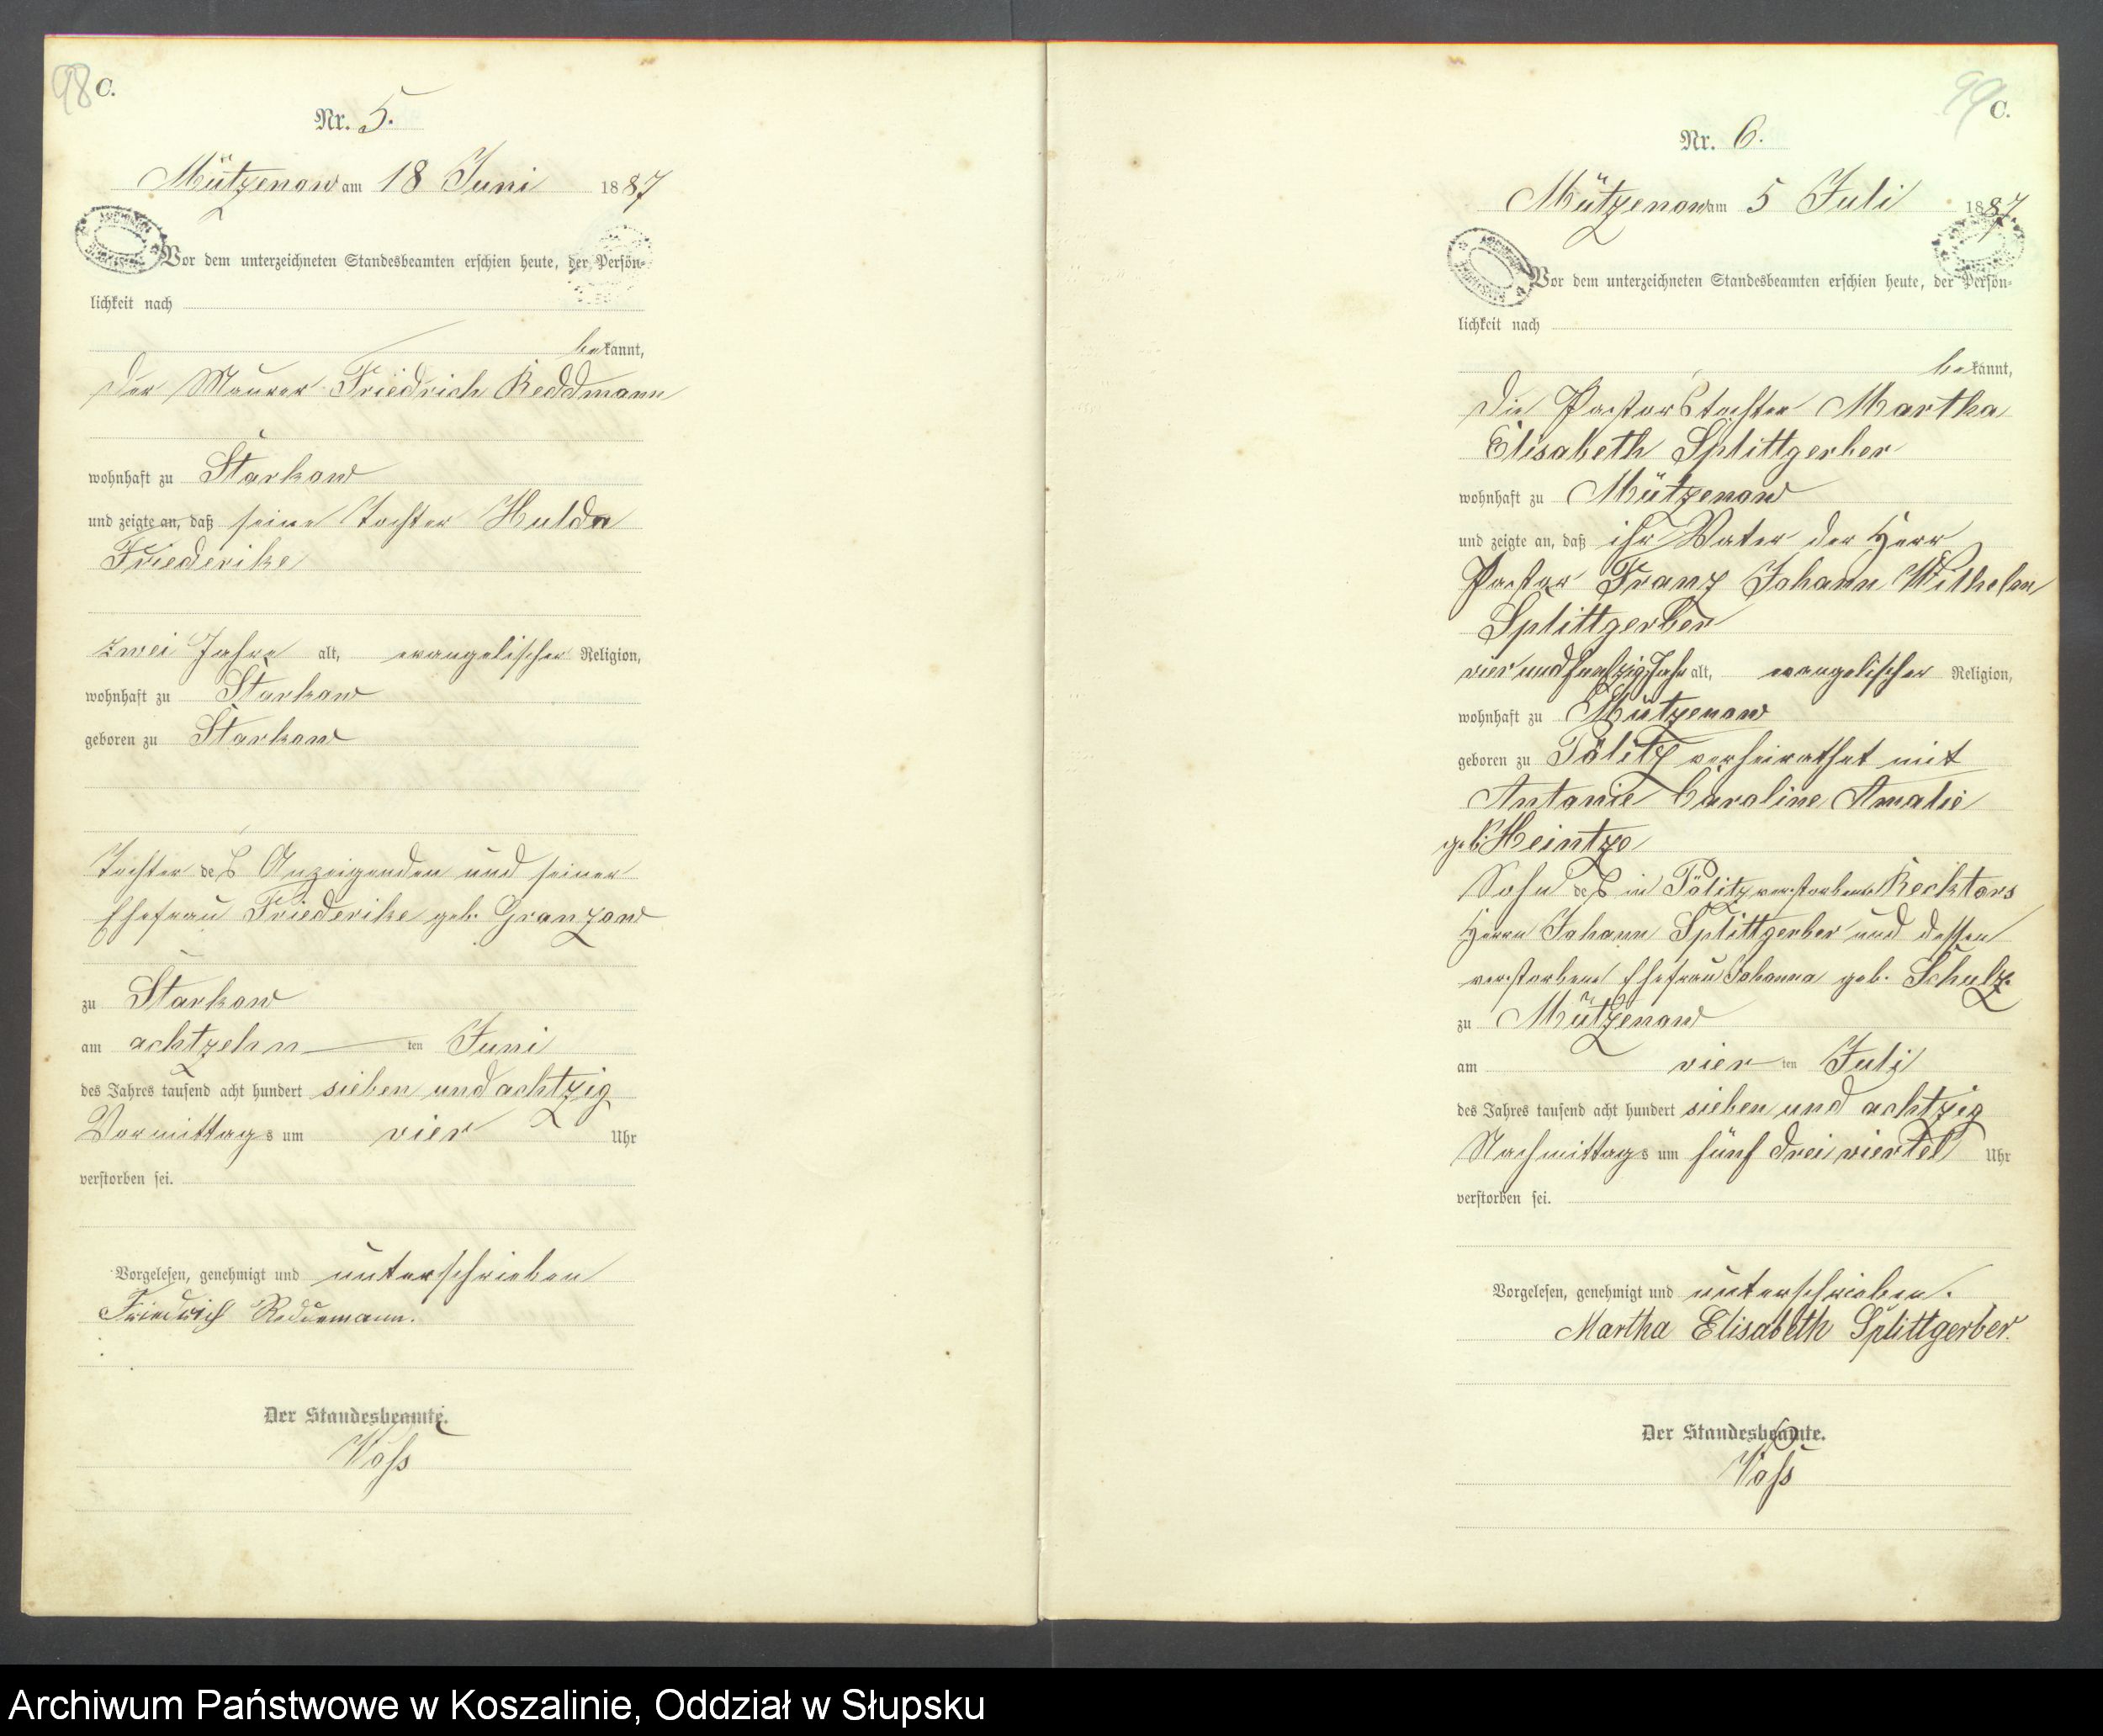 98
C.
Nr. 5.
Mützenow am 18 Juni 1887
Vor dem unterzeichneten Standesbeamten erschien heute, der Persön-
lichkeit nach
bekannt,
der Maurer Friedrich Reddmann
wohnhaft zu Starkow
und zeigte an, daß seine Tochter Hulda
Friederike
zwei Jahre alt, evangelischer Religion,
wohnhaft zu Starkow
geboren zu Starkow
Tochter des Anzeigenden und seiner
Ehefrau Friederike geb. Granzow
zu Starkow
am achtzehn ten Juni
des Jahres tausend acht hundert sieben und achtzig
Vormittags um vier Uhr
verstorben sei.
Vorgelesen, genehmigt und unterschrieben
Friedrich Reddemann.
Der Standesbeamte.
Voß
99
C.
Nr. 6.
Mützenow am 5 Juli 1887
Vor dem unterzeichneten Standesbeamten erschien heute, der Persön-
lichkeit nach
bekannt,
die Pastorstochter Martha
Elisabeth Splittgerber
wohnhaft zu Mützenow
und zeigte an, daß ihr Vater der Herr
Pastor Franz Johann Wilhelm
Splittgerber
vier und funfzig Jahr alt, evangelischer Religion,
wohnhaft zu Mützenow
geboren zu Pölitz verheirathet mit
Antonie Caroline Amalie
geb. Heintze
Sohn des in Pölitz verstorbenen Recktors
Herrn Johann Splittgerber und dessen
verstorbene Ehefrau Johanna geb. Schulz.
zu Mützenow
am vier ten Juli
des Jahres tausend acht hundert sieben und achtzig
Nachmittags um fünf drei viertel Uhr
verstorben sei.
Vorgelesen, genehmigt und unterschrieben.
Martha Elisabeth Splittgerber.
Der Standesbeamte.
Voß
Archiwum Państwowe w Koszalinie, Oddział w Słupsku